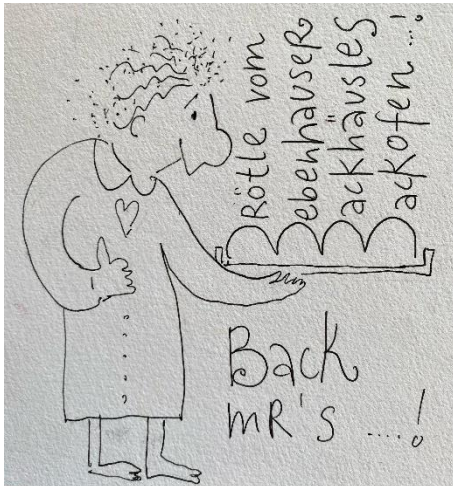 BRötle vom
Bebenhäuser
Backhäusles
Backofen...!
Back
mR's ....!